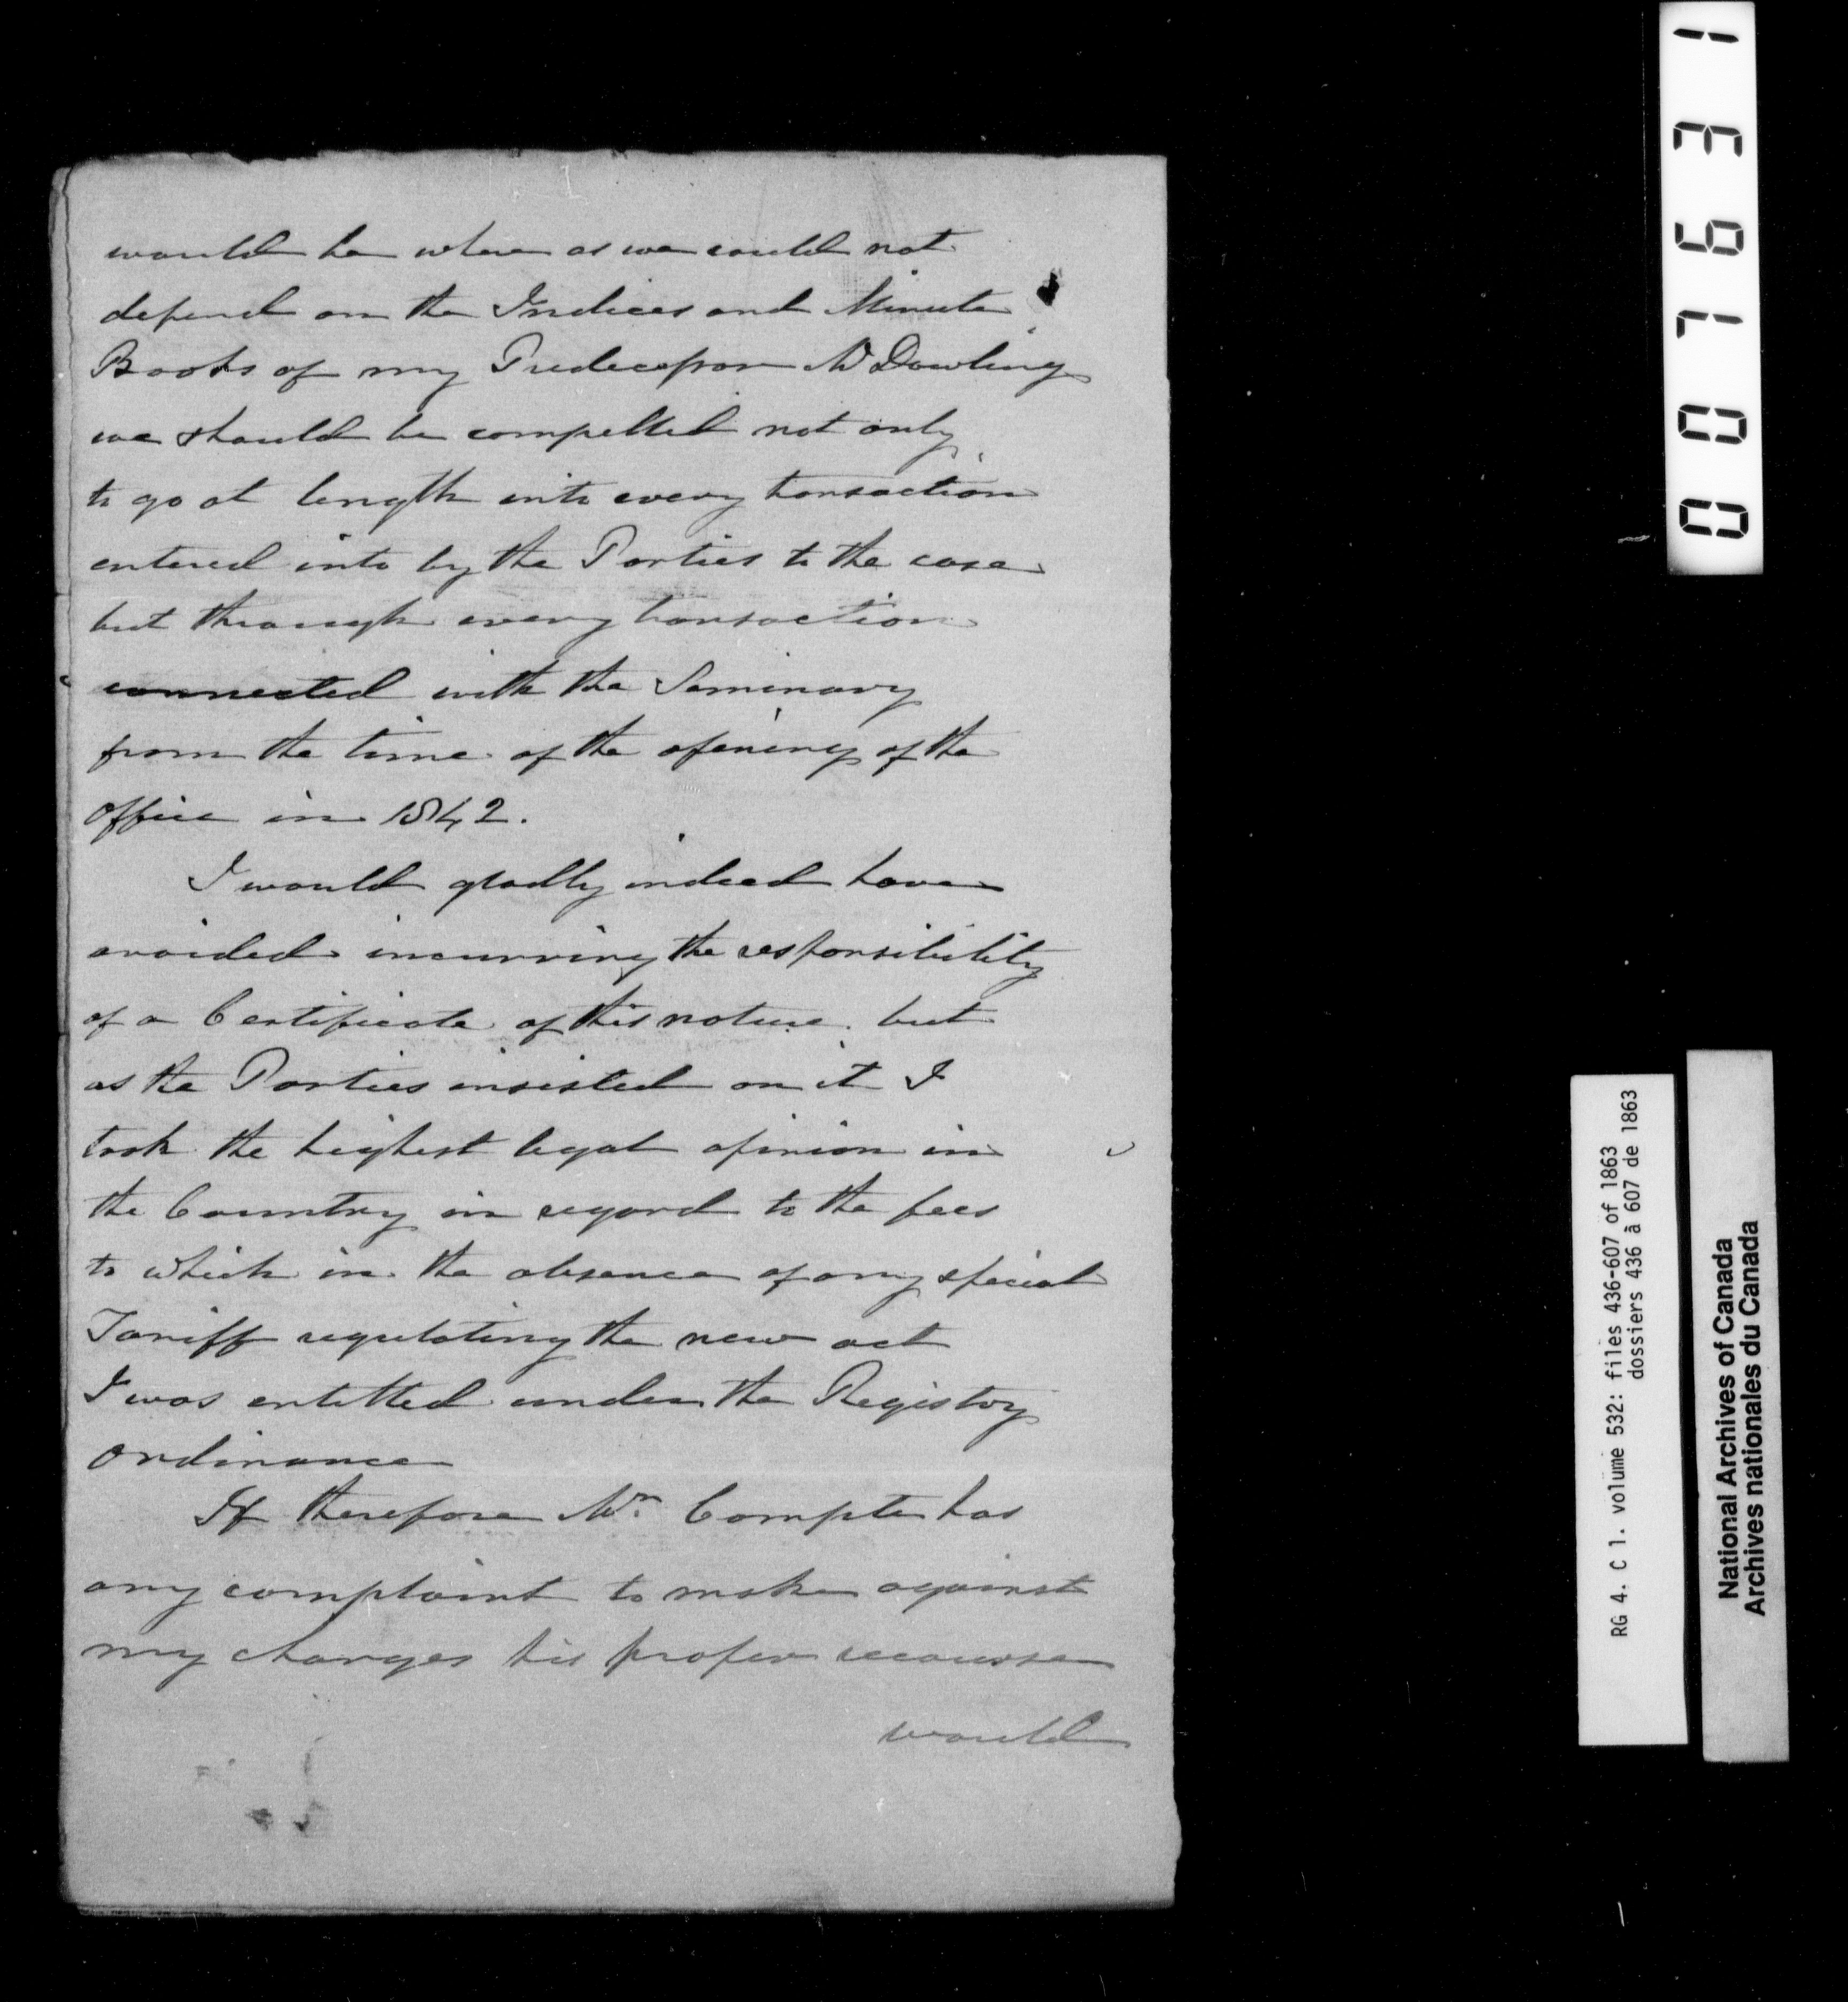 would be where as we could not
depend on the Indices and Minute
Books of my Predecessor Mr Dowling
we should be compelled not only
to go at length into every transaction
entered into by the Parties to the case
but through every transaction
connected with the Seminary
from the time of the opening of the
office in 1842.
I would gladly indeed have
avoided incurring the responsibility
of a Certificate of this nature. but
as the Parties insisted on it I
took the highest legal opinion in
the Country in regard to the fees
to which in the absence of any special
Tariff regulating the new act
I was entitled under the Registry
Ordinance
If therefore Mr. Compte has
any complaint to make against
my charges his proper recourse
would
007631
RG 4. C 1. volume 532: files 436-607 of 1863
dossiers 436 à 607 de 1863
National Archives of Canada
Archives nationales du Canada